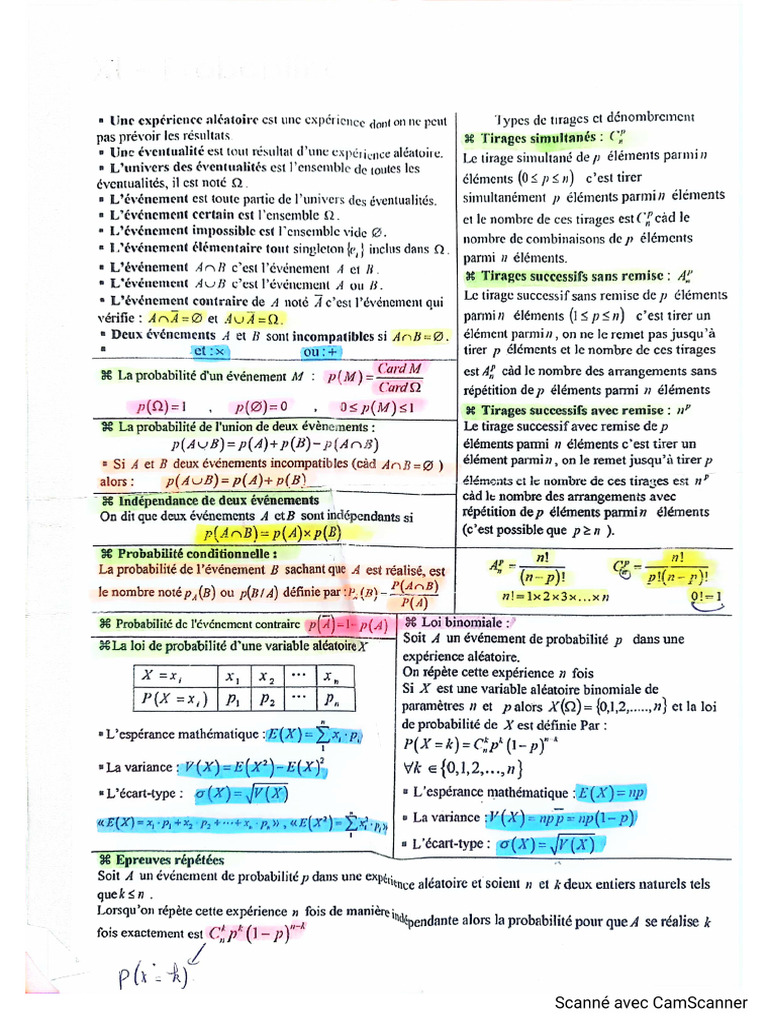 ▪ Une expérience aléatoire est une expérience dont on ne peut
pas prévoir les résultats
▪ Une éventualité est tout résultat d'une expérience aléatoire.
▪ L'univers des éventualités est l'ensemble de toutes les
éventualités, il est noté Ω.
▪ L'événement est toute partie de l'univers des éventualités.
▪ L'événement certain est l'ensemble Ω.
▪ L'événement impossible est l'ensemble vide ∅.
▪ L'événement élémentaire tout singleton {eᵢ} inclus dans Ω.
▪ L'événement A∩B c'est l'événement A et B.
▪ L'événement A∪B c'est l'événement A ou B.
▪ L'événement contraire de A noté A̅ c'est l'événement qui
vérifie : A∩A̅=∅ et A∪A̅=Ω.
▪ Deux événements A et B sont incompatibles si A∩B=∅.
▪ et : × ou : +
⌘ La probabilité d'un événement M : p(M)=Card M/Card Ω
p(Ω)=1 , p(∅)=0 , 0≤p(M)≤1
⌘ La probabilité de l'union de deux évènements :
p(A∪B)=p(A)+p(B)−p(A∩B)
▪ Si A et B deux événements incompatibles (càd A∩B=∅)
alors : p(A∪B)=p(A)+p(B)
⌘ Indépendance de deux événements
On dit que deux événements A et B sont indépendants si
p(A∩B)=p(A)×p(B)
⌘ Probabilité conditionnelle :
La probabilité de l'événement B sachant que A est réalisé, est
le nombre noté p_A(B) ou p(B/A) définie par : P_A(B)=P(A∩B)/P(A)
⌘ Probabilité de l'événement contraire p(A̅)=1−p(A)
Types de tirages et dénombrement
⌘ Tirages simultanés : Cₙᵖ
Le tirage simultané de p éléments parmi n
éléments (0≤p≤n) c'est tirer
simultanément p éléments parmi n éléments
et le nombre de ces tirages est Cₙᵖ càd le
nombre de combinaisons de p éléments
parmi n éléments.
⌘ Tirages successifs sans remise : Aₙᵖ
Le tirage successif sans remise de p éléments
parmi n éléments (1≤p≤n) c'est tirer un
élément parmi n, on ne le remet pas jusqu'à
tirer p éléments et le nombre de ces tirages
est Aₙᵖ càd le nombre des arrangements sans
répétition de p éléments parmi n éléments
⌘ Tirages successifs avec remise : nᵖ
Le tirage successif avec remise de p
éléments parmi n éléments c'est tirer un
élément parmi n, on le remet jusqu'à tirer p
éléments et le nombre de ces tirages est nᵖ
càd le nombre des arrangements avec
répétition de p éléments parmi n éléments
(c'est possible que p≥n ).
Aₙᵖ=n!/(n−p)! Cₙᵖ=n!/p!(n−p)!
n!=1×2×3×...×n 0!=1
⌘ La loi de probabilité d'une variable aléatoire X
X=xᵢ x₁ x₂ ⋯ xₙ
P(X=xᵢ) p₁ p₂ ⋯ pₙ
▪ L'espérance mathématique : E(X)=∑₁ⁿ xᵢ·pᵢ
▪ La variance : V(X)=E(X²)−E(X)²
▪ L'écart-type : σ(X)=√V(X)
«E(X)=x₁·p₁+x₂·p₂+⋯+xₙ·pₙ», «E(X²)=∑₁ⁿ xᵢ²·pᵢ»
⌘ Loi binomiale :
Soit A un événement de probabilité p dans une
expérience aléatoire.
On répète cette expérience n fois
Si X est une variable aléatoire binomiale de
paramètres n et p alors X(Ω)={0,1,2,.....,n} et la loi
de probabilité de X est définie Par :
P(X=k)=Cₙᵏpᵏ(1−p)ⁿ⁻ᵏ
∀k∈{0,1,2,...,n}
▪ L'espérance mathématique : E(X)=np
▪ La variance : V(X)=npp̅=np(1−p)
▪ L'écart-type : σ(X)=√V(X)
⌘ Epreuves répétées
Soit A un événement de probabilité p dans une expérience aléatoire et soient n et k deux entiers naturels tels
que k≤n .
Lorsqu'on répète cette expérience n fois de manière indépendante alors la probabilité pour que A se réalise k
fois exactement est Cₙᵏpᵏ(1−p)ⁿ⁻ᵏ
P(x=k)
Scanné avec CamScanner